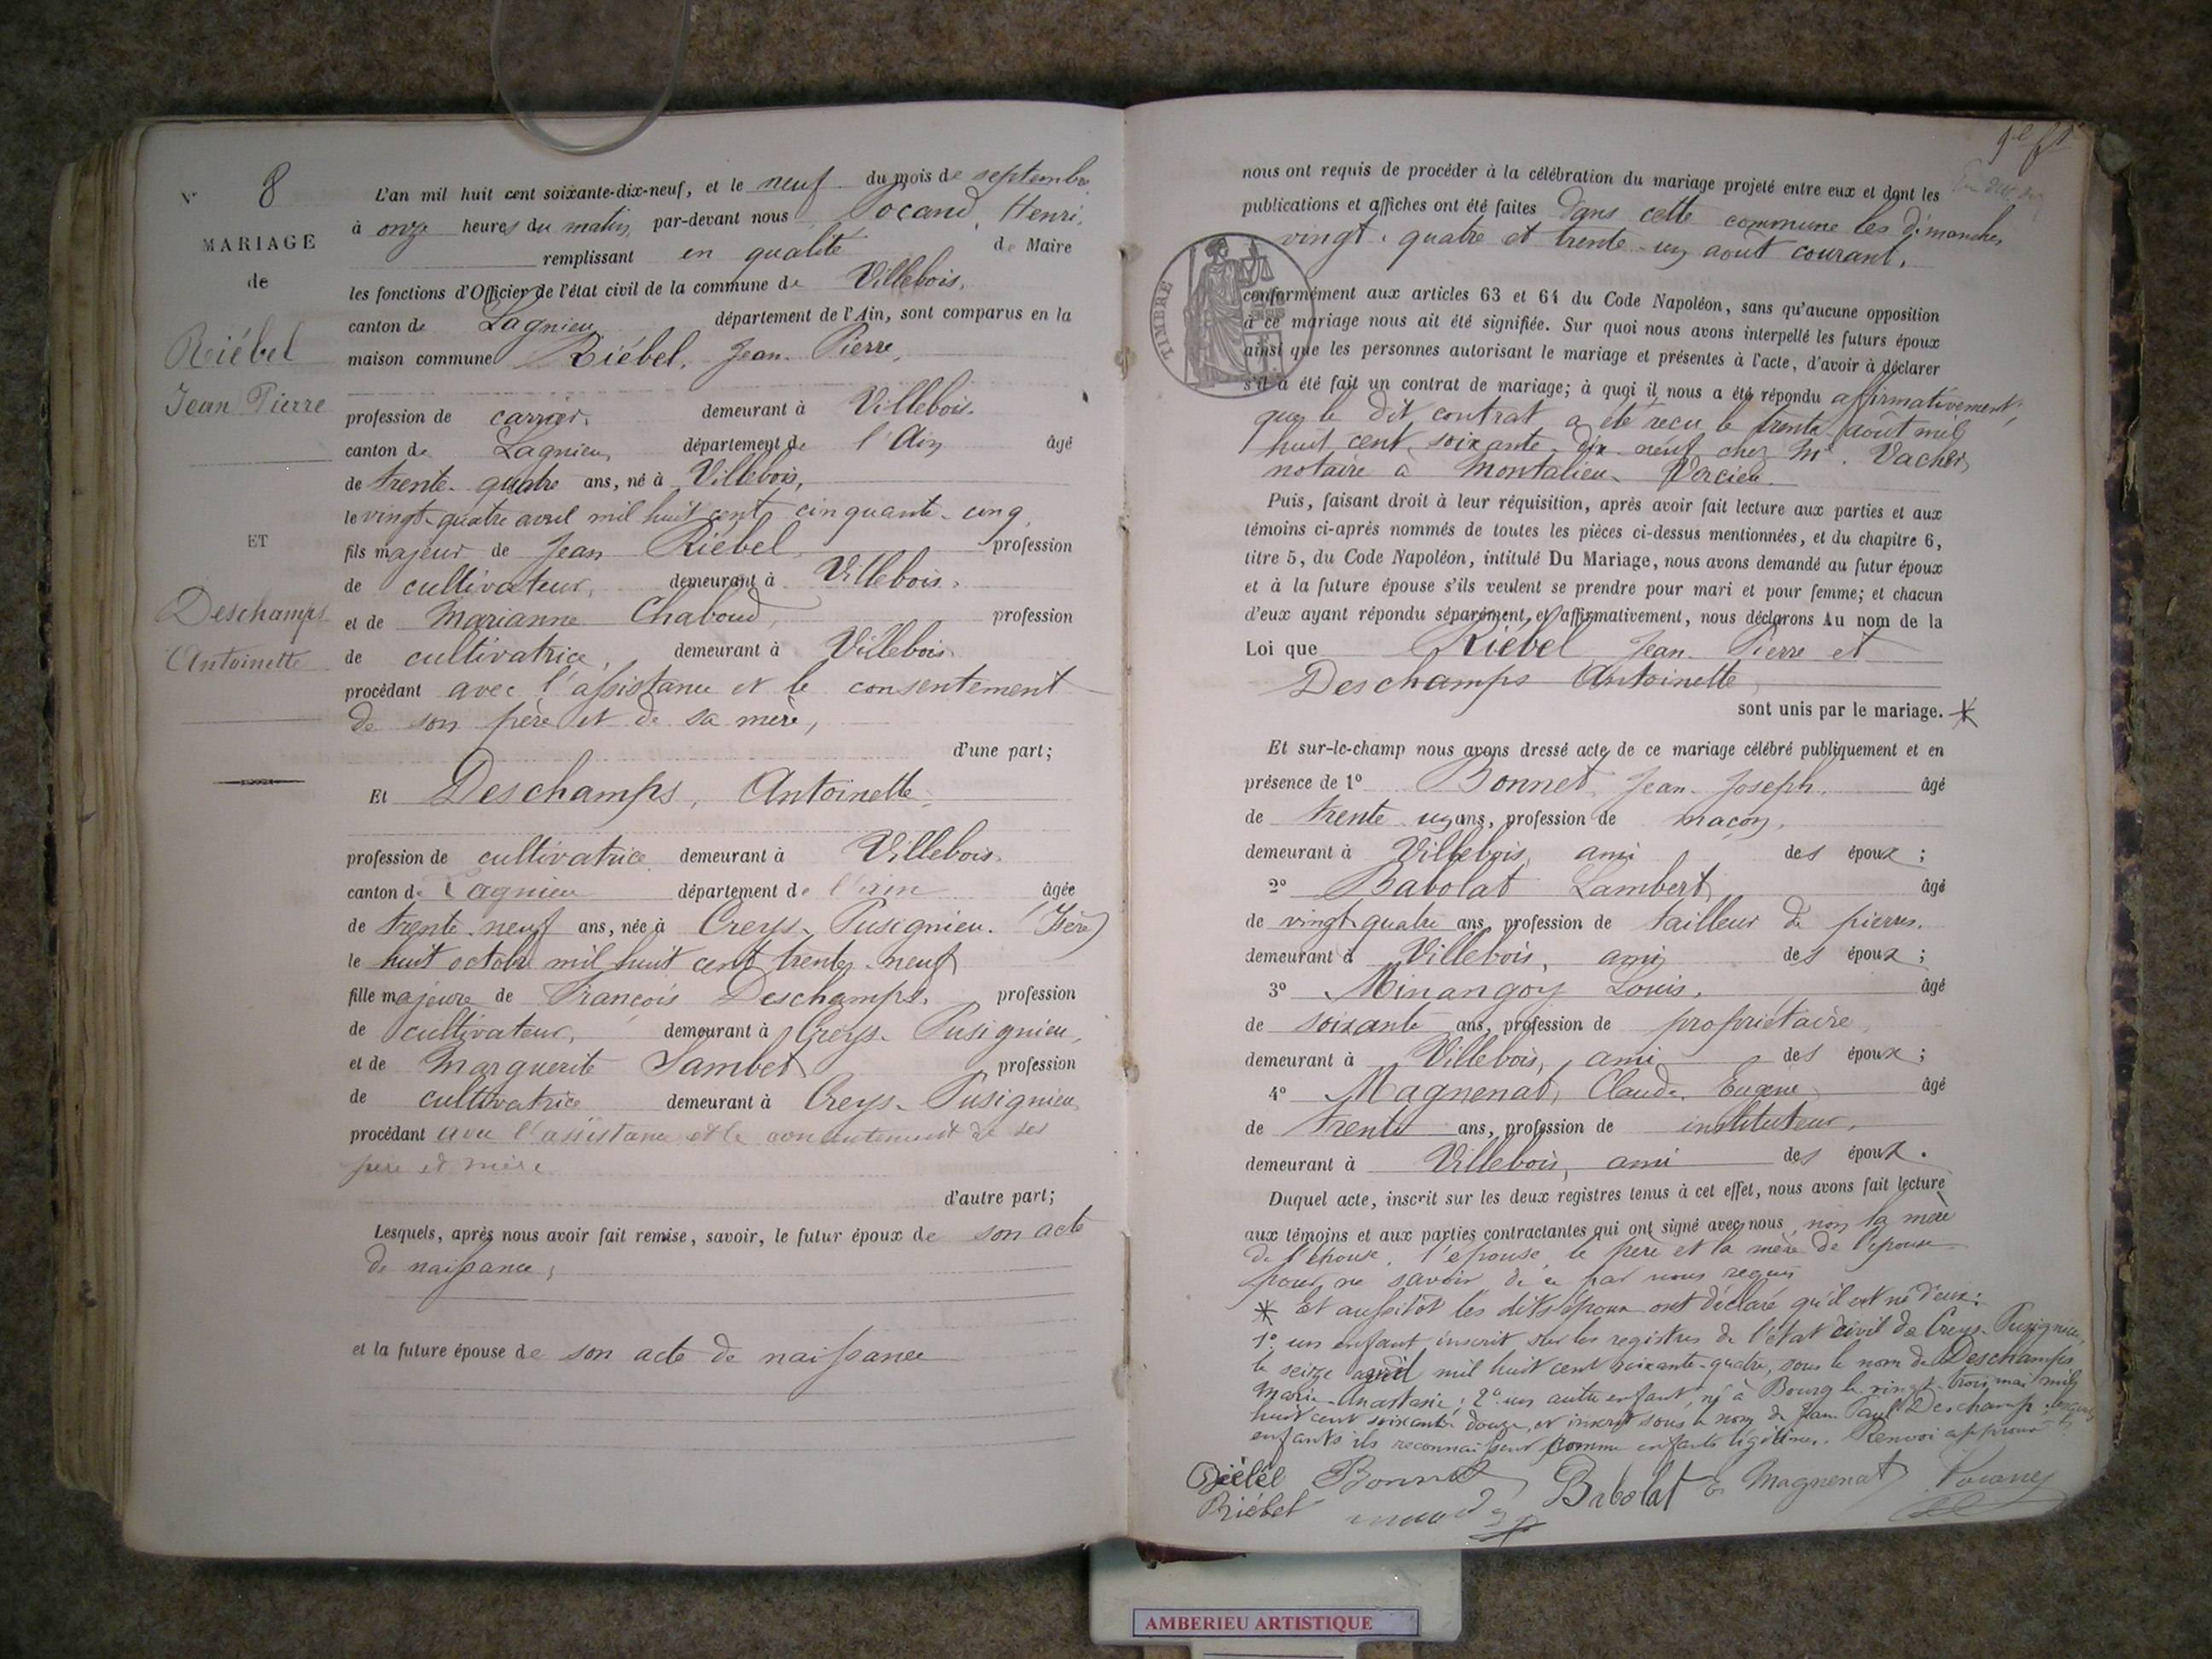 N° 8
MARIAGE
de
Riébel
Jean Pierre
ET
Deschamps
Antoinette
L'an mil huit cent soixante-dix-neuf, et le neuf du mois de septembre
à onze heures du matin, par-devant nous Pocand, Henri,
remplissant en qualité de Maire
les fonctions d'Officier de l'état civil de la commune de Villebois,
canton de Lagnieu département de l'Ain, sont comparus en la
maison commune Riébel, Jean-Pierre,
profession de carrier demeurant à Villebois.
canton de Lagnieu département de l'Ain âgé
de trente-quatre ans, né à Villebois,
le vingt-quatre avril mil huit cent cinquante-cinq,
fils majeur de Jean Riébel profession
de cultivateur, demeurant à Villebois,
et de Marianne Chaboud, profession
de cultivatrice, demeurant à Villebois
procédant avec l'assistance et le consentement
de son père et de sa mère,
d'une part;
Et Deschamps, Antoinette,
profession de cultivatrice demeurant à Villebois
canton de Lagnieu département de l'ain âgée
de trente-neuf ans, née à Creys-Pusignieu. (Isère)
le huit octobre mil huit cent trente-neuf
fille majeure de François Deschamps, profession
de cultivateur, demeurant à Creys-Pusignieu,
et de Marguerite Sambet profession
de cultivatrice demeurant à Creys-Pusignieu
procédant avec l'assistance et le consentement de ses
père et mère
d'autre part;
Lesquels, après nous avoir fait remise, savoir, le futur époux de son acte
de naissance,
et la future épouse de son acte de naissance
nous ont requis de procéder à la célébration du mariage projeté entre eux et dont les
publications et affiches ont été faites dans cette commune les dimanches
vingt-quatre et trente-un août courant,
TIMBRE
conformément aux articles 63 et 64 du Code Napoléon, sans qu'aucune opposition
à ce mariage nous ait été signifiée. Sur quoi nous avons interpellé les futurs époux
ainsi que les personnes autorisant le mariage et présentes à l'acte, d'avoir à déclarer
s'il a été fait un contrat de mariage; à quoi il nous a été répondu affirmativement,
que le dit contrat a été reçu le trente août mil
huit cent soixante-dix-neuf chez Me. Vacher,
notaire à Montalieu-Vercieu.
Puis, faisant droit à leur réquisition, après avoir fait lecture aux parties et aux
témoins ci-après nommés de toutes les pièces ci-dessus mentionnées, et du chapitre 6,
titre 5, du Code Napoléon, intitulé Du Mariage, nous avons demandé au futur époux
et à la future épouse s'ils veulent se prendre pour mari et pour femme; et chacun
d'eux ayant répondu séparément et affirmativement, nous déclarons Au nom de la
Loi que Riébel Jean-Pierre et
Deschamps Antoinette
sont unis par le mariage. *
Et sur-le-champ nous avons dressé acte de ce mariage célébré publiquement et en
présence de 1° Bonnet, Jean-Joseph, âgé
de trente-un ans, profession de maçon,
demeurant à Villebois, ami des époux;
2° Babolat Lambert, âgé
de vingt-quatre ans, profession de tailleur de pierres.
demeurant à Villebois, ami des époux;
3° Minangoy Louis, âgé
de soixante ans, profession de propriétaire
demeurant à Villebois, ami des époux;
4° Magnenat, Claude-Eugène âgé
de trente ans, profession de instituteur,
demeurant à Villebois, ami des époux.
Duquel acte, inscrit sur les deux registres tenus à cet effet, nous avons fait lecture
aux témoins et aux parties contractantes qui ont signé avec nous, non la mère
de l'époux, l'épouse, le père et la mère de l'épouse
pour ne savoir de ce par nous requis
* Et aussitôt les dits époux ont déclaré qu'il est né d'eux:
1° un enfant inscrit sur les registres de l'état civil de Creys-Pusignieu,
le seize avril mil huit cent soixante-quatre, sous le nom de Deschamps
Marie-Anastasie; 2° un autre enfant, né à Bourg le vingt-trois mai mil
huit cent soixante douze, et inscrit sous le nom de Jean Paul Deschamp, lesquels
enfants ils reconnaissent comme enfants légitimes. Renvoi approuvé
Riébel Bonnet Babolat E Magnenat Pocand
Riébel
AMBERIEU ARTISTIQUE